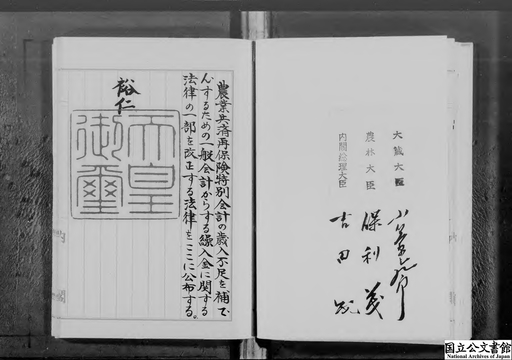 農業共済再保険特別会計の歳入不足を補て
んするための一般会計からする繰入金に関する
法律の一部を改正する法律をここに公布する。
裕仁
天皇
御璽
大蔵大臣
農林大臣 保利茂
内閣総理大臣 吉田茂
国立公文書館
National Archives of Japan